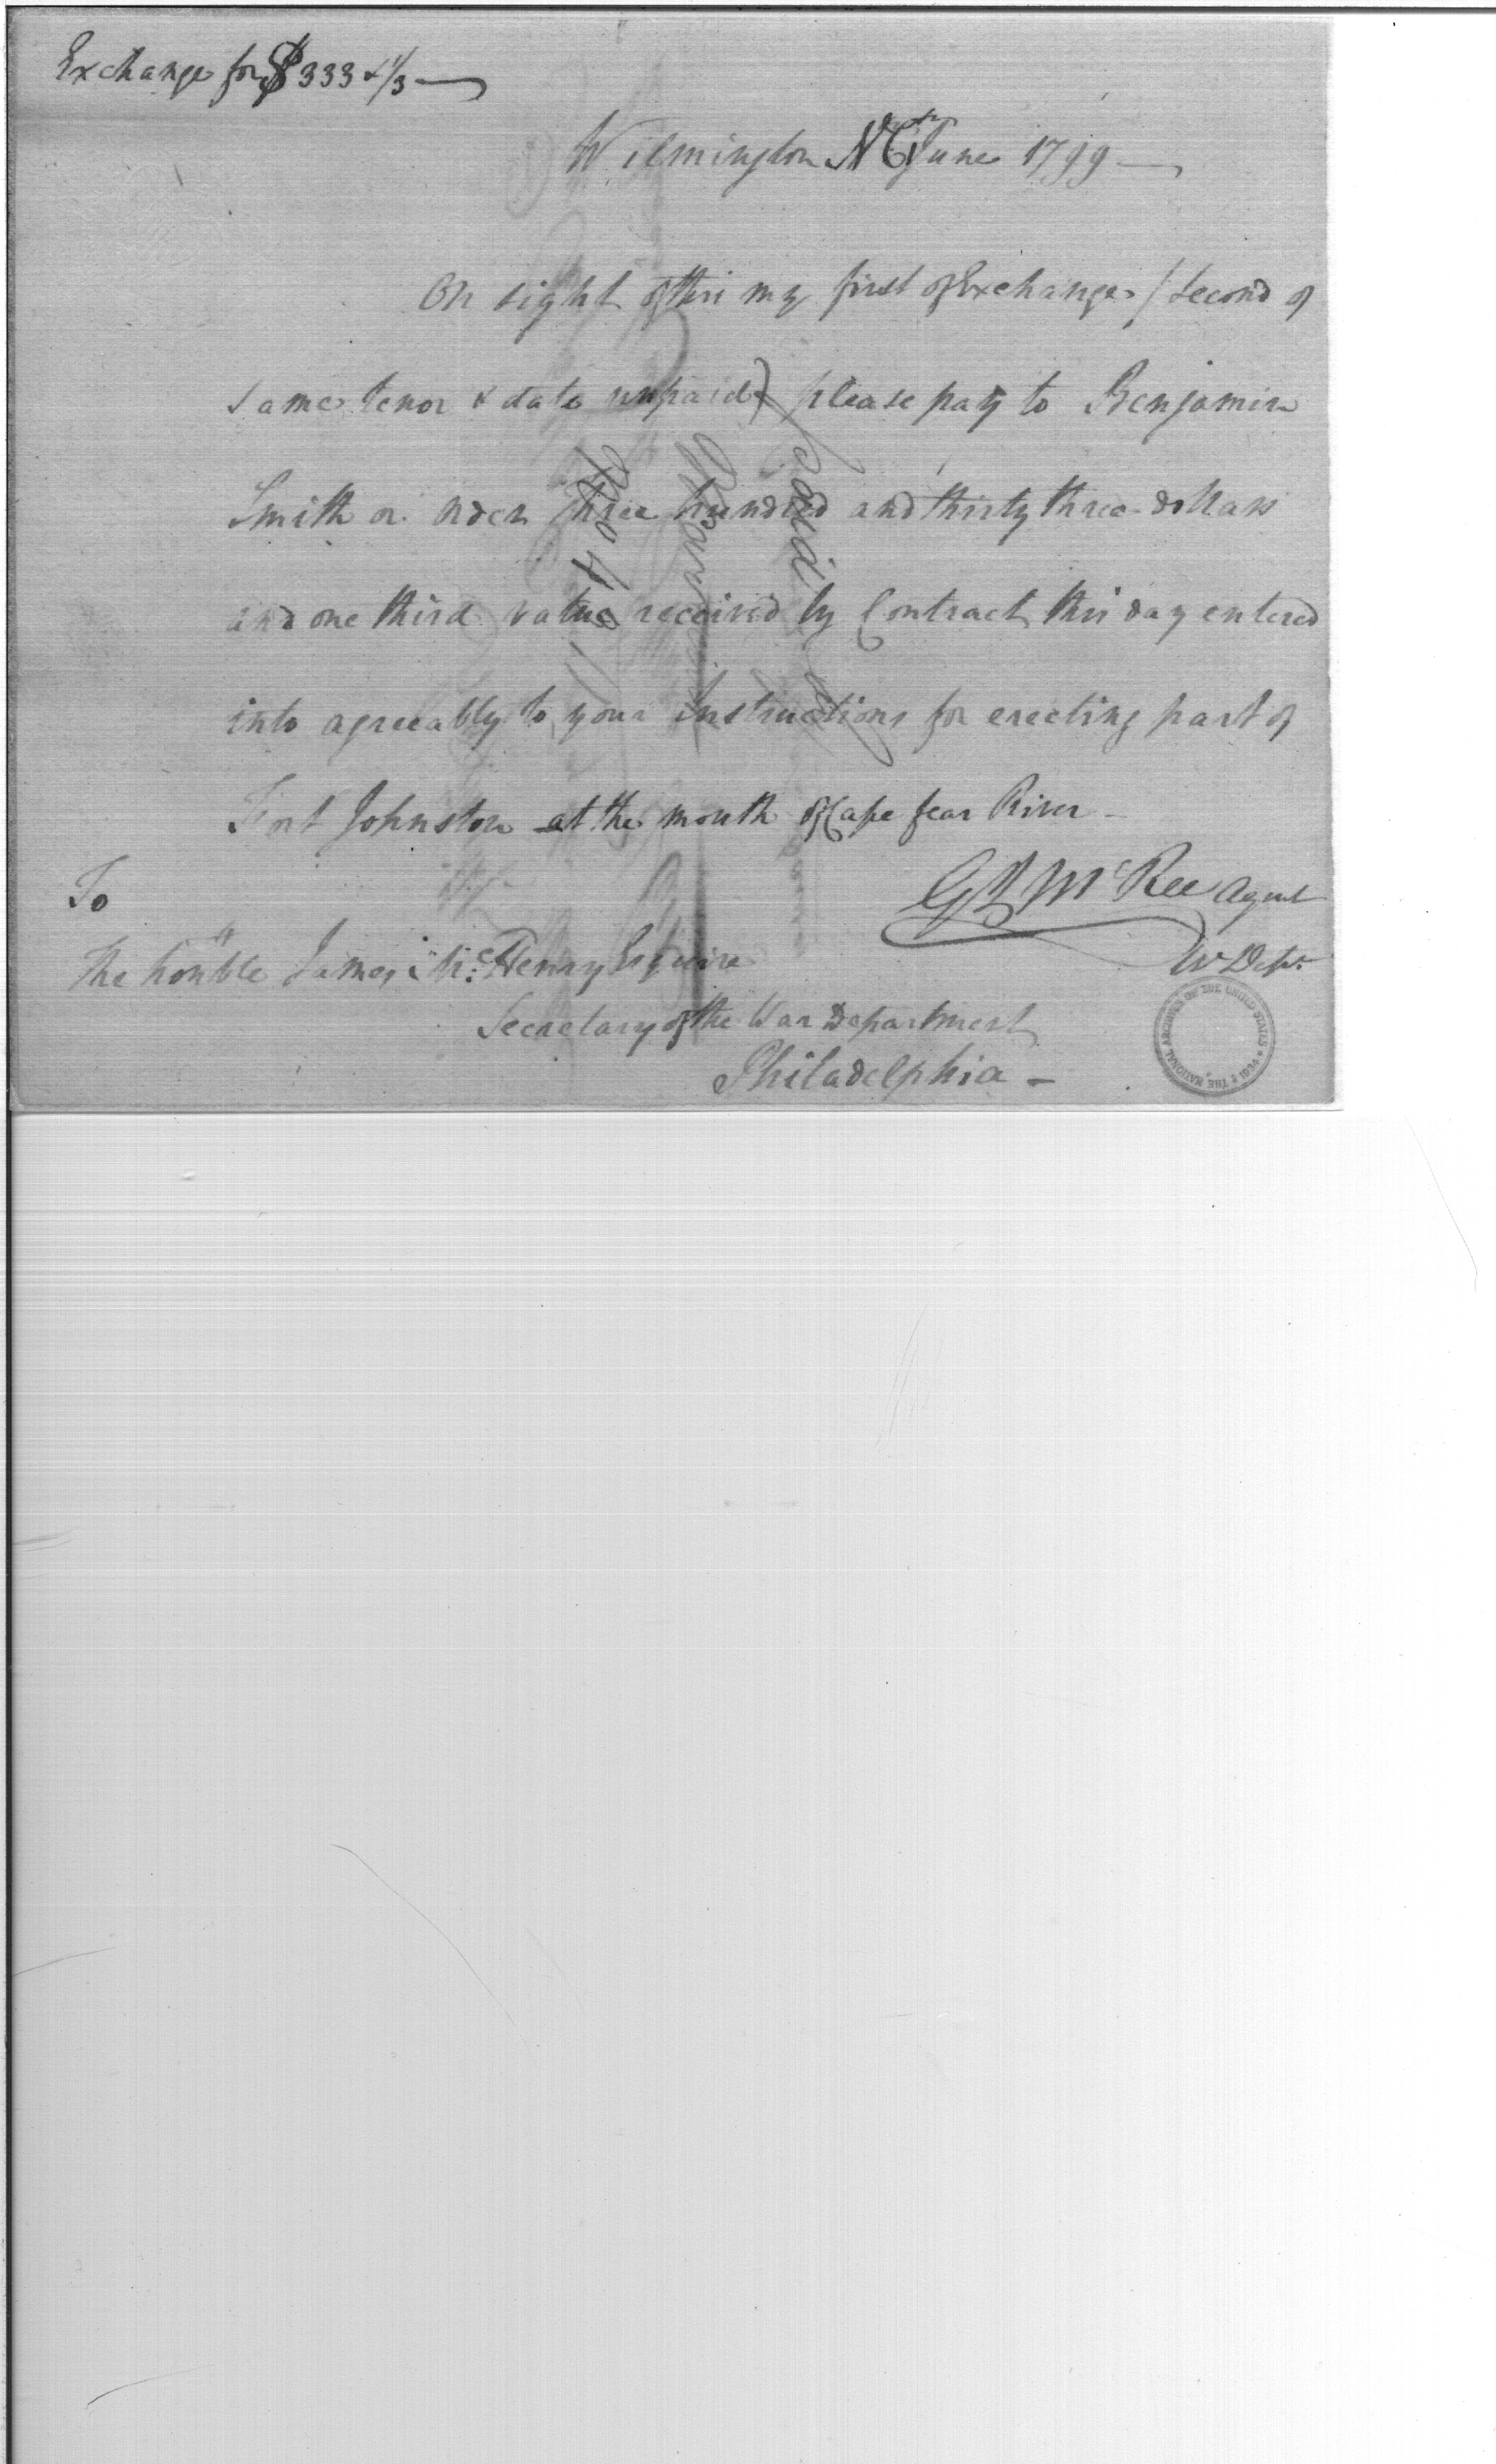 Exchange for $333 & 1/3
Wilmington NC June 1799
On sight of this my first of Exchange (second of
same tenor & date unpaid) please pay to Benjamin
Smith or order three hundred and thirty three dollars
and one third value received by Contract this day entered
into agreeably to your instructions for erecting part of
Fort Johnston at the mouth of Cape fear River
G J McRee Agent
W Dept.
To
The honble James McHenry Esquire
Secretary of the War Department
Philadelphia
THE NATIONAL ARCHIVES OF THE UNITED STATES 1934